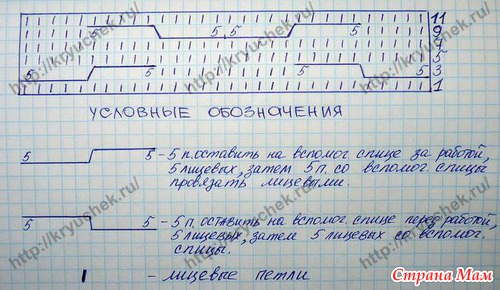 11
5 5,5 5 9
7
5
5 5 5 5 3
1
УСЛОВНЫЕ ОБОЗНАЧЕНИЯ
5 5 - 5 п. оставить на вспомог. спице за работой,
5 лицевых, затем 5 п. со вспомог. спицы
провязать лицевыми.
5 5 - 5 п. оставить на вспомог. спице перед работой,
5 лицевых, затем 5 лицевых со вспомог.
спицы.
I - лицевые петли
http://kryuchek.ru/
http://kryuchek.ru/
http://kryuchek.ru/
http://kryuchek.ru/
http://kryuchek.ru/
http://kryuchek.ru/
Страна Мам